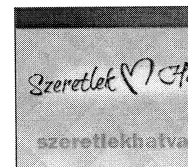 Szeretlek ♡
szeretlekhatva